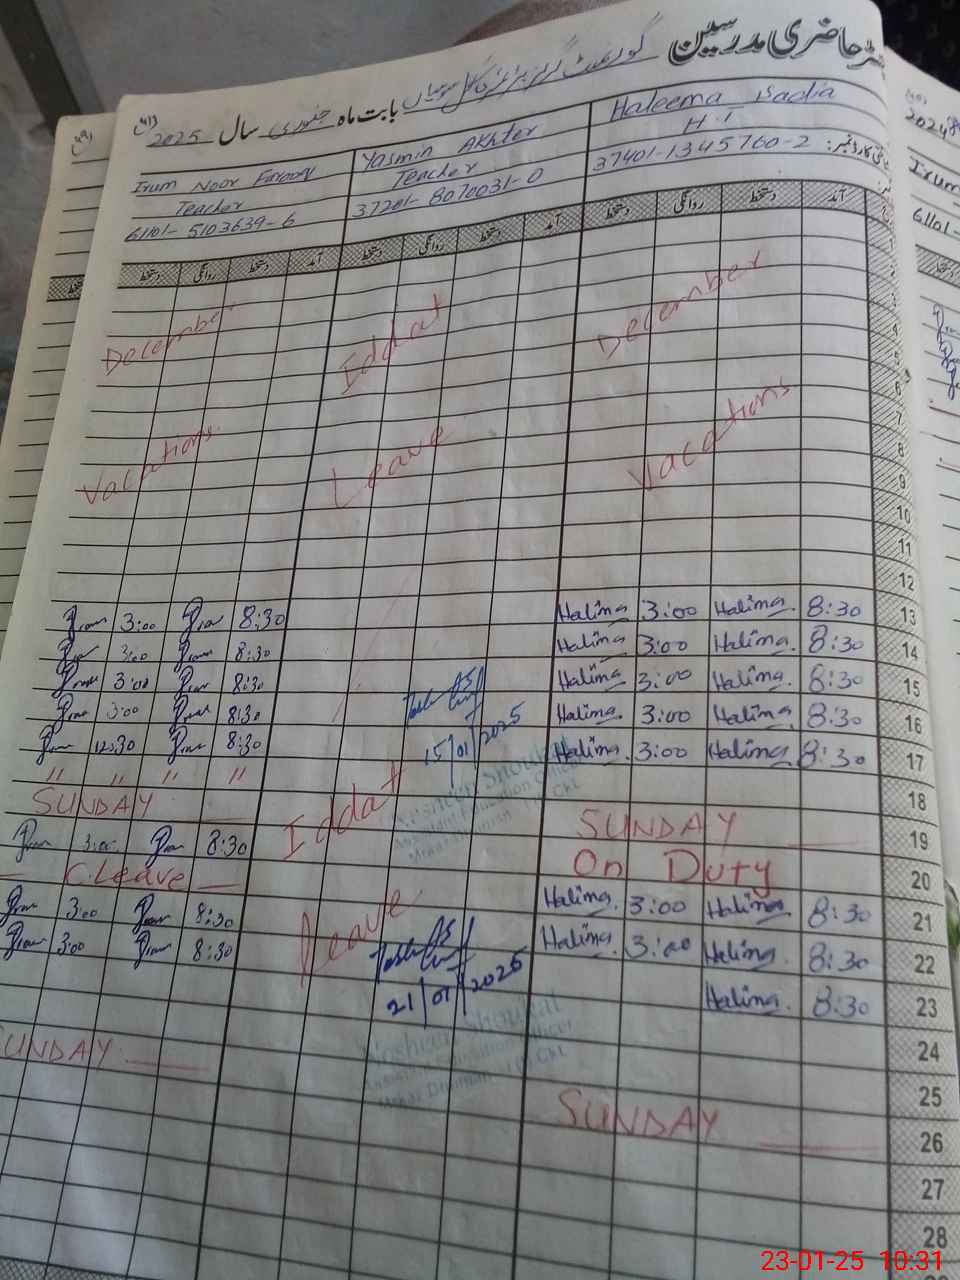 رجسٹر حاضری مدرسین
بابت ماہ جنوری سال 2025
Haleema Sadia
H.T
37401-1345760-2
Yasmin Akhter
Teacher
37201-8070031-0
Irum Noor Farooq
Teacher
61101-5103639-6
آمد دستخط روانگی دستخط آمد دستخط روانگی دستخط آمد دستخط روانگی دستخط
December Iddat December
Vacations Leave Vacations
1
2
3
4
5
6
7
8
9
10
11
12
3:00 8:30 Halima 3:00 Halima 8:30 13
3:00 8:30 Halima 3:00 Halima 8:30 14
3:00 8:30 Halima 3:00 Halima 8:30 15
3:00 8:30 Halima 3:00 Halima 8:30 16
12:30 8:30 15/01/2025 Halima 3:00 Halima 8:30 17
" " " " 18
SUNDAY Iddat SUNDAY 19
3:00 8:30 On Duty 20
C.leave Leave Halima 3:00 Halima 8:30 21
3:00 8:30 Halima 3:00 Halima 8:30 22
3:00 8:30 21/01/2025 Halima 8:30 23
Assistant Education Officer
24
SUNDAY 25
SUNDAY 26
27
28
2024
Irum
61101-
23-01-25 10:31